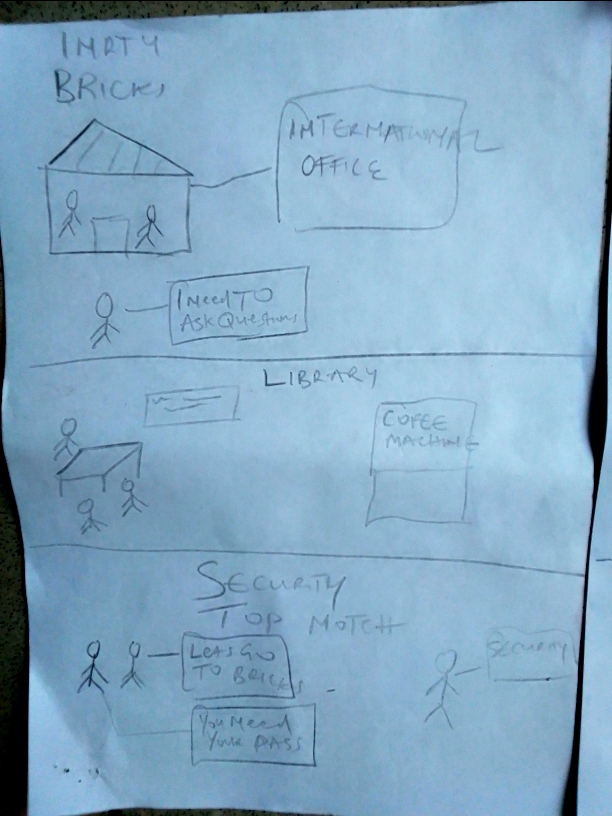 BRICKS
INTERNATIONAL
OFFICE
I Need TO
Ask Questions
LIBRARY
COFEE
MACHINE
SECURITY
TOP MOTCH
LETS GO
TO BRICKS
SECURITY
You Need
Your PASS